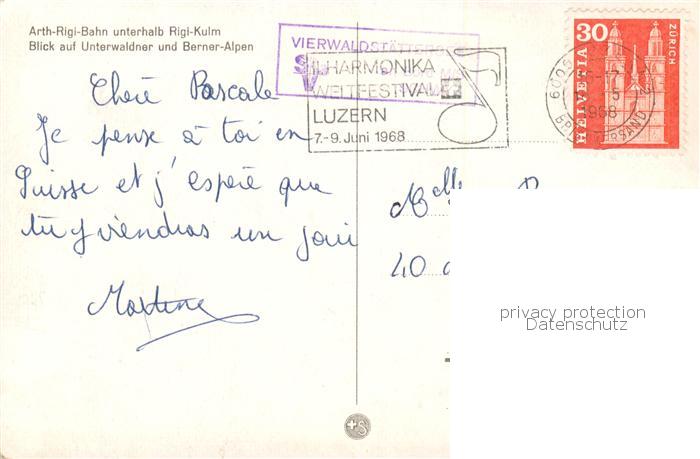 Arth-Rigi-Bahn unterhalb Rigi-Kulm
Blick auf Unterwaldner und Berner-Alpen
VIERWALDSTÄTTERSEE
HARMONIKA
WELTFESTIVAL
LUZERN
7.-9. Juni 1968
30
HELVETIA
ZÜRICH
1968
BRIEFVERSAND
Chère Pascale
Je pense à toi en
Suisse et j'espère que
tu y viendras un jour
Martine
Melle
40
privacy protection
Datenschutz
+S